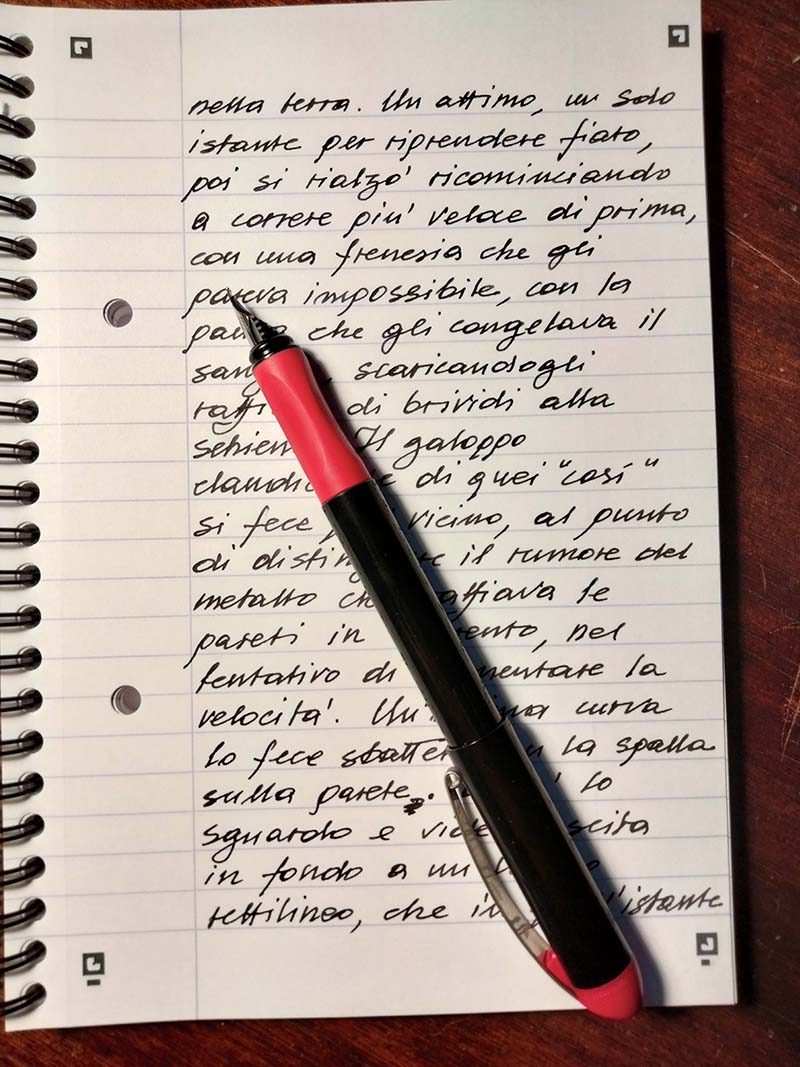 nella terra. Un attimo, un solo
istante per riprendere fiato,
poi si rialzo' ricominciando
a correre piu' veloce di prima,
con una frenesia che gli
pareva impossibile, con la
che gli congelava il
scaricandogli
di brividi alla
Il galoppo
di quei "cosi"
si fece vicino, al punto
di il rumore del
metallo le
pareti in nel
tentativo di la
velocita'. curva
lo fece la spalla
sulla parete. lo
sguardo e
in fondo a un
rettilineo, che l'istante